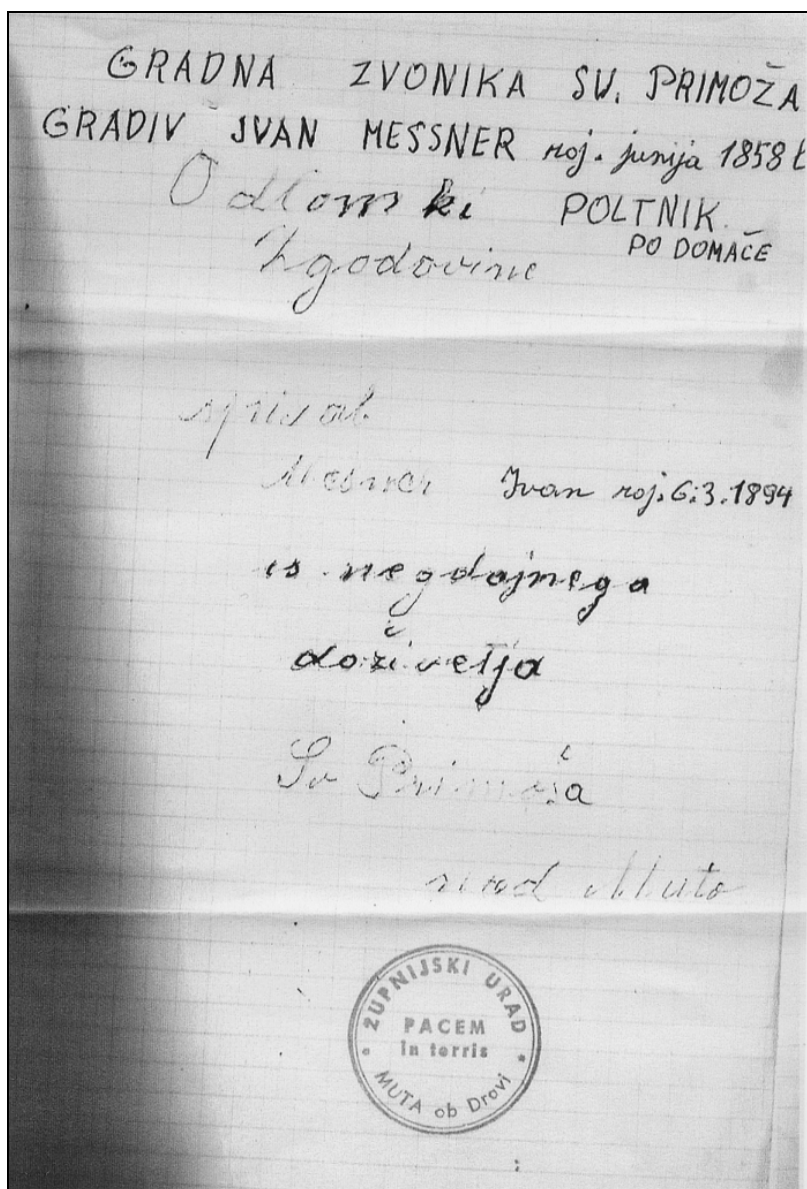 GRADNA ZVONIKA SV. PRIMOŽA
GRADIV JVAN MESSNER roj. junija 1858
Odlomki POLTNIK
PO DOMAČE
Zgodovine
spisal
Mesner Ivan roj. 6.3.1894
is negdajnega
doživetja
Sv Primoža
nad Muto
ŽUPNIJSKI URAD
PACEM
in terris
MUTA ob Dravi